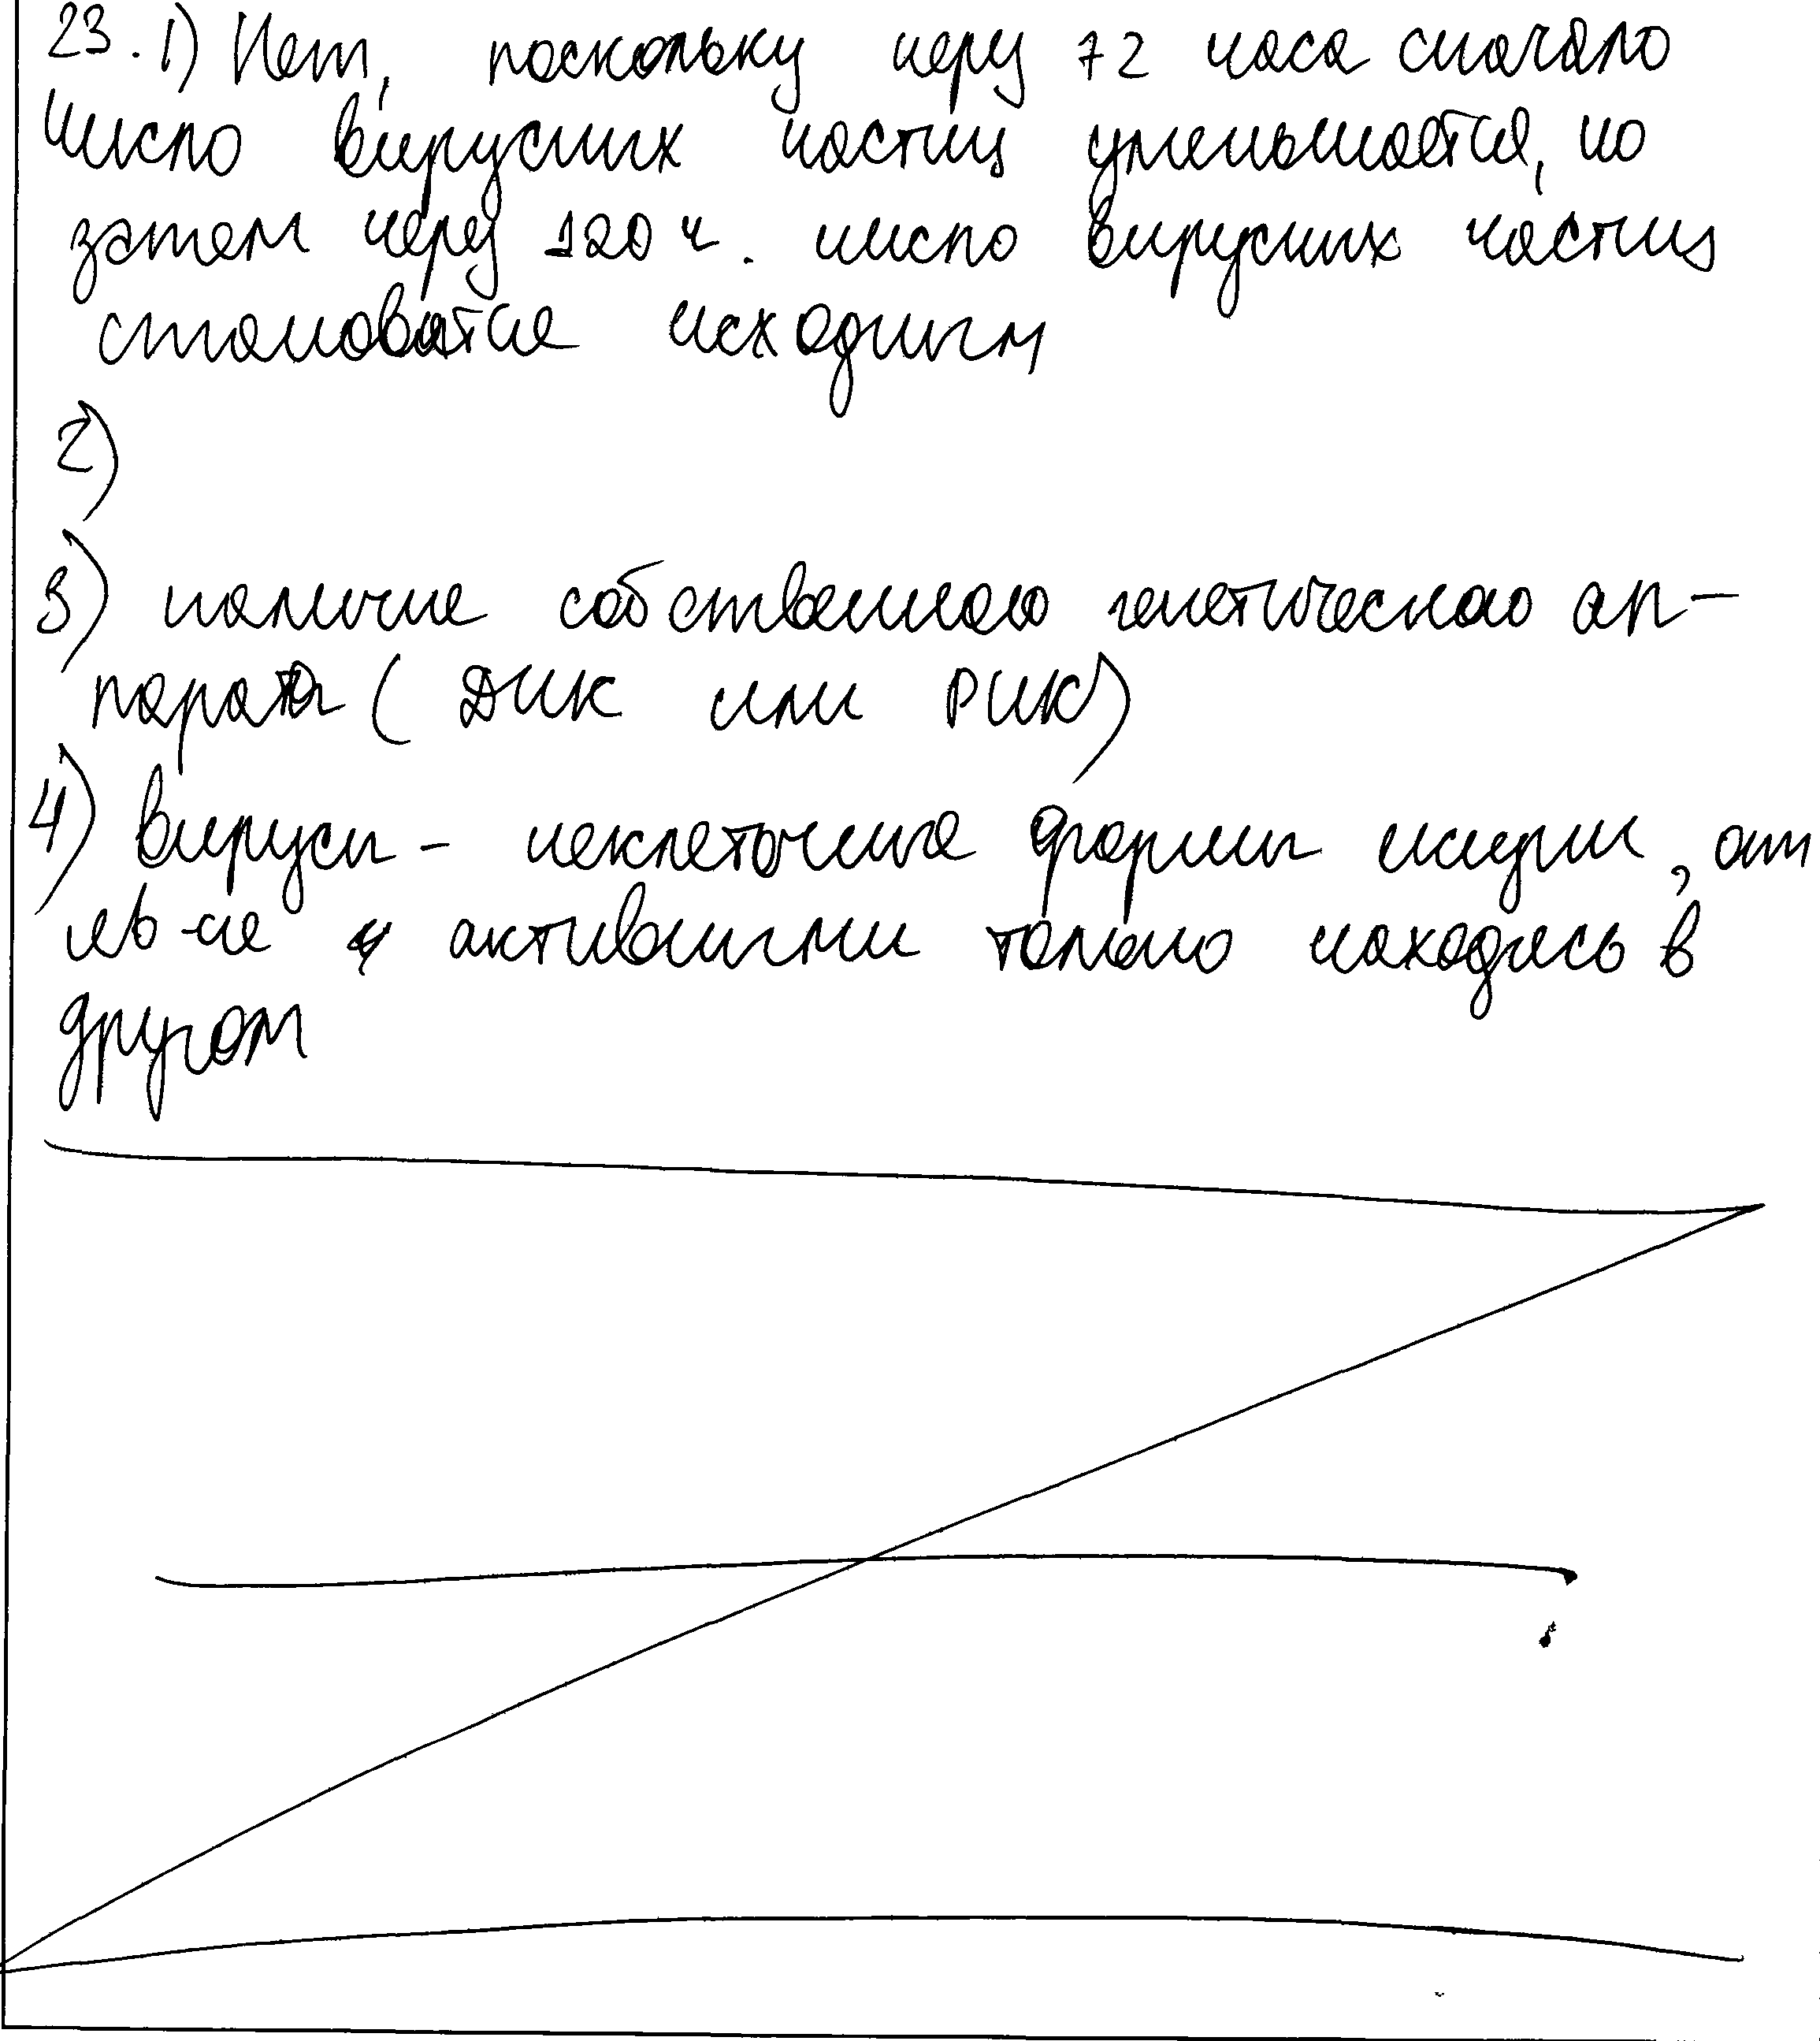 23. 1) Нет, поскольку через 72 часа сначало
число вирусных частиц уменьшается, но
затем через 120 ч. число вирусных частиц
становятся исходным
2)
3) наличие собственного генетического ап-
парата (ДНК или РНК)
4) вирусы - неклеточные формы жизни,
активными только находясь в
другом